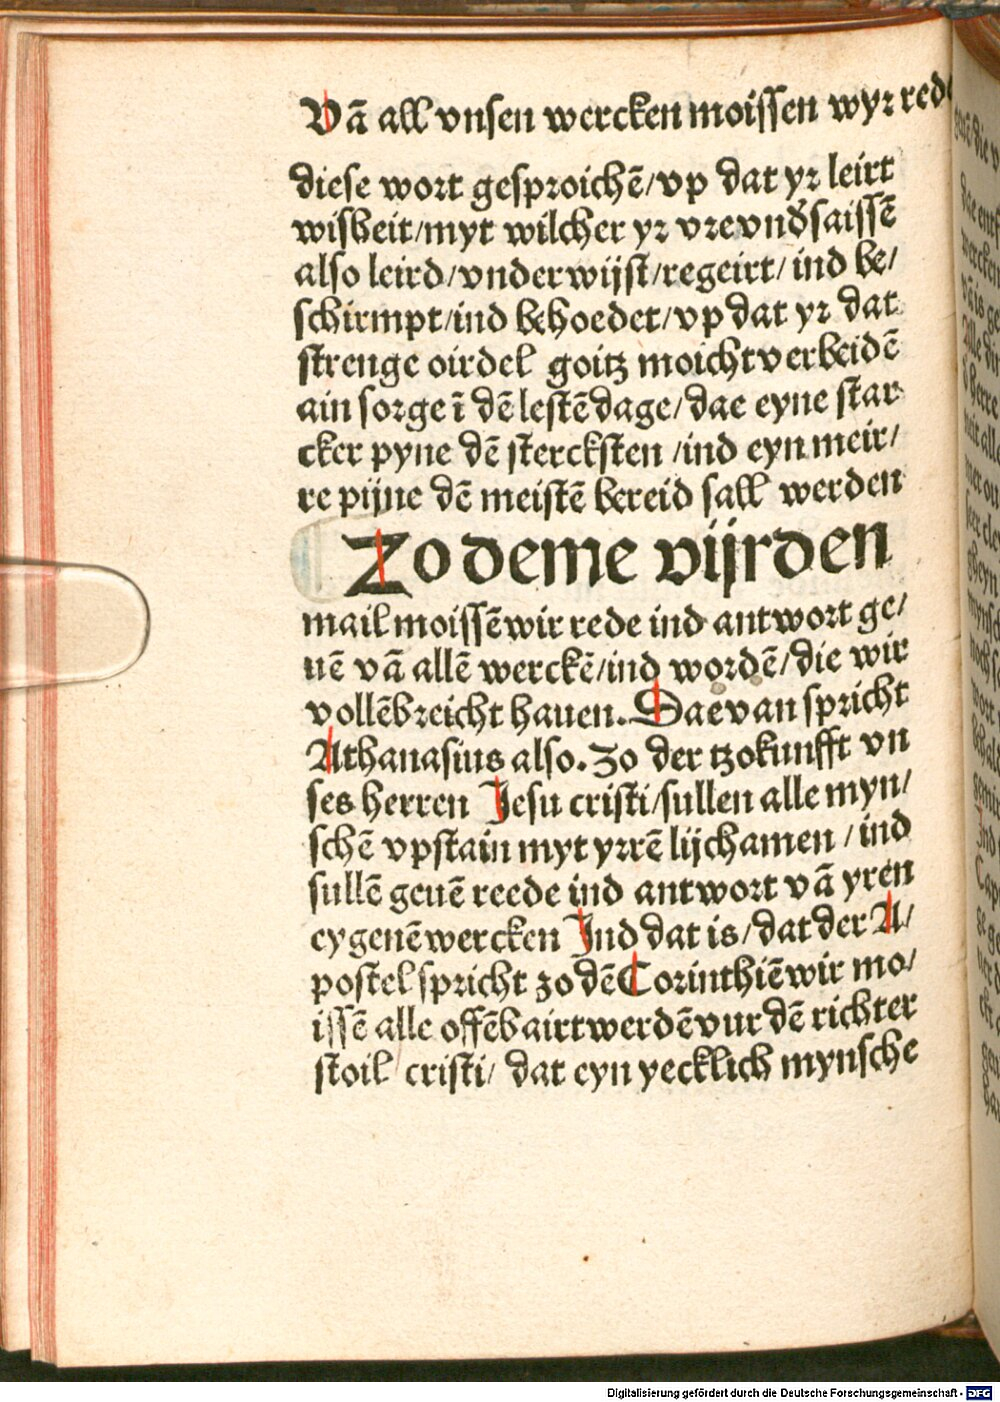 Vā all vnsen wercken moissen wyr rede
diese wort gesproichē/vp dat yr leirt
wisheit/myt wilcher yr vre vnd'saissē
also leird/vnderwijst/regeirt/ind be/
schirmpt/ind behoedet/vp dat yr dat
strenge oirdel goitz moicht verbeidē
ain sorge ī dē lestē dage/dae eyne star
cker pyne dē stercksten /ind eyn meir/
re pijne dē meistē bereid sall werden
Zo deme vijrden
mail moissē wir rede ind antwort ge/
uē vā allē werckē/ind wordē/die wir
vollēbreicht hauen. Dae van spricht
Athanasius also. Zo der tzokunfft vn
ses herren Jesu cristi/sullen alle myn/
schē vpstain myt yrrē lijchamen /ind
sullē geuē reede ind antwort vā yren
eygenē wercken Ind dat is/dat der A/
postel spricht zo dē Corinthiē wir mo/
issē alle offēbairt werdē vur dē richter
stoil cristi/ dat eyn yecklich mynsche
Digitalisierung gefördert durch die Deutsche Forschungsgemeinschaft - DFG